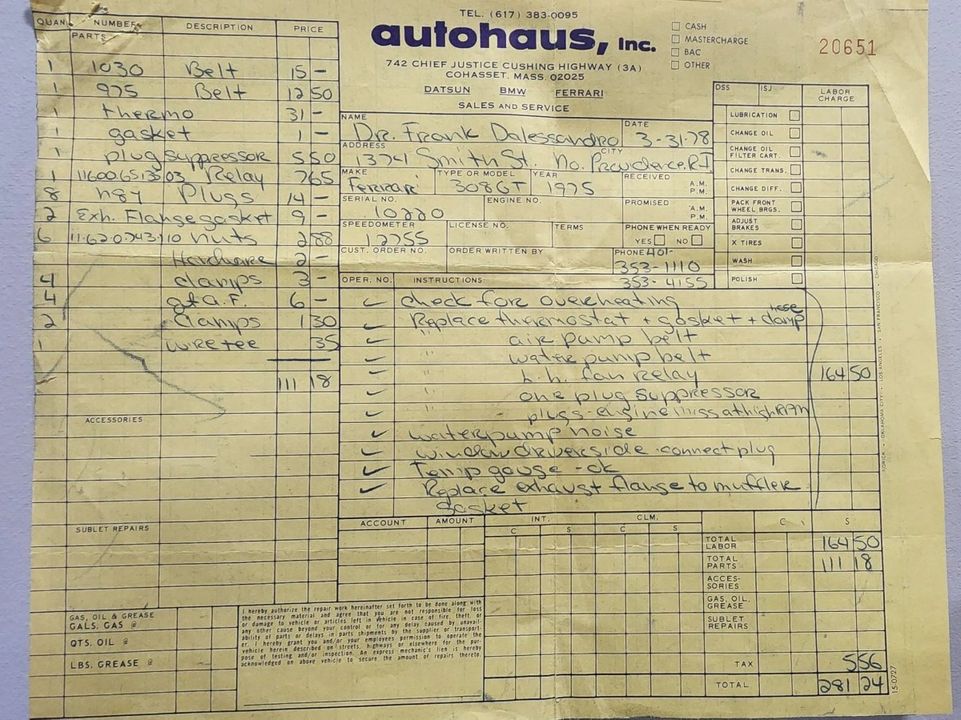 TEL. (617) 383-0095
autohaus, Inc.
742 CHIEF JUSTICE CUSHING HIGHWAY (3A)
COHASSET, MASS. 02025
DATSUN BMW FERRARI
SALES AND SERVICE
CASH
MASTERCHARGE
BAC
OTHER
20651
QUAN. NUMBER DESCRIPTION PRICE
PARTS
1 1030 Belt 15 -
1 975 Belt 12 50
1 thermo 31 -
1 gasket 1 -
1 plug suppressor 5 50
1 Relay 7 65
8 Plugs 14 -
2 Exh. Flange gasket 9 -
6 nuts 2 88
Hardware 2 -
4 clamps 3 -
4 A.F. 6 -
2 clamps 1 30
1 wire tee 35
111 18
ACCESSORIES
SUBLET REPAIRS
GAS, OIL & GREASE
GALS. GAS @
QTS. OIL @
LBS. GREASE @
NAME DATE
Dr. Frank Dalessandro 3-31-78
ADDRESS CITY
1374 Smith St. No. Providence, RI
MAKE TYPE OR MODEL YEAR RECEIVED A.M. P.M.
Ferrari 308GT 1975
SERIAL NO. ENGINE NO. PROMISED A.M. P.M.
10220
SPEEDOMETER LICENSE NO. TERMS PHONE WHEN READY
12755 YES NO
CUST. ORDER NO. ORDER WRITTEN BY PHONE 401-
353-1110
353-4155
DSS ISJ LABOR CHARGE
LUBRICATION
CHANGE OIL
CHANGE OIL FILTER CART.
CHANGE TRANS.
CHANGE DIFF.
PACK FRONT WHEEL BRGS.
ADJUST BRAKES
X TIRES
WASH
POLISH
OPER. NO. INSTRUCTIONS:
✓ check for overheating
✓ Replace thermostat + gasket + hose clamp
✓ " air pump belt
✓ " water pump belt
✓ " fan relay 164 50
✓ " one plug suppressor
✓ " plugs - engine miss at high RPM
✓ water pump noise
✓ window driver side - connect plug
✓ Temp gauge - ok
✓ Replace exhaust flange to muffler
gasket
ACCOUNT AMOUNT INT. CLM.
C S C S C S
TOTAL LABOR 164 50
TOTAL PARTS 111 18
ACCESSORIES
GAS, OIL, GREASE
SUBLET REPAIRS
TAX 5 56
TOTAL 281 24
I hereby authorize the repair work hereinafter set forth to be done along with
the necessary material and agree that you are not responsible for loss
or damage to vehicle or articles left in vehicle in case of fire, theft or
any other cause beyond your control or for any delay caused by unavail-
ability of parts or delays in parts shipments by the supplier or transport-
er. I hereby grant you and/or your employees permission to operate the
vehicle herein described on streets, highways or elsewhere for the pur-
pose of testing and/or inspection. An express mechanic's lien is hereby
acknowledged on above vehicle to secure the amount of repairs thereto.
15-0727